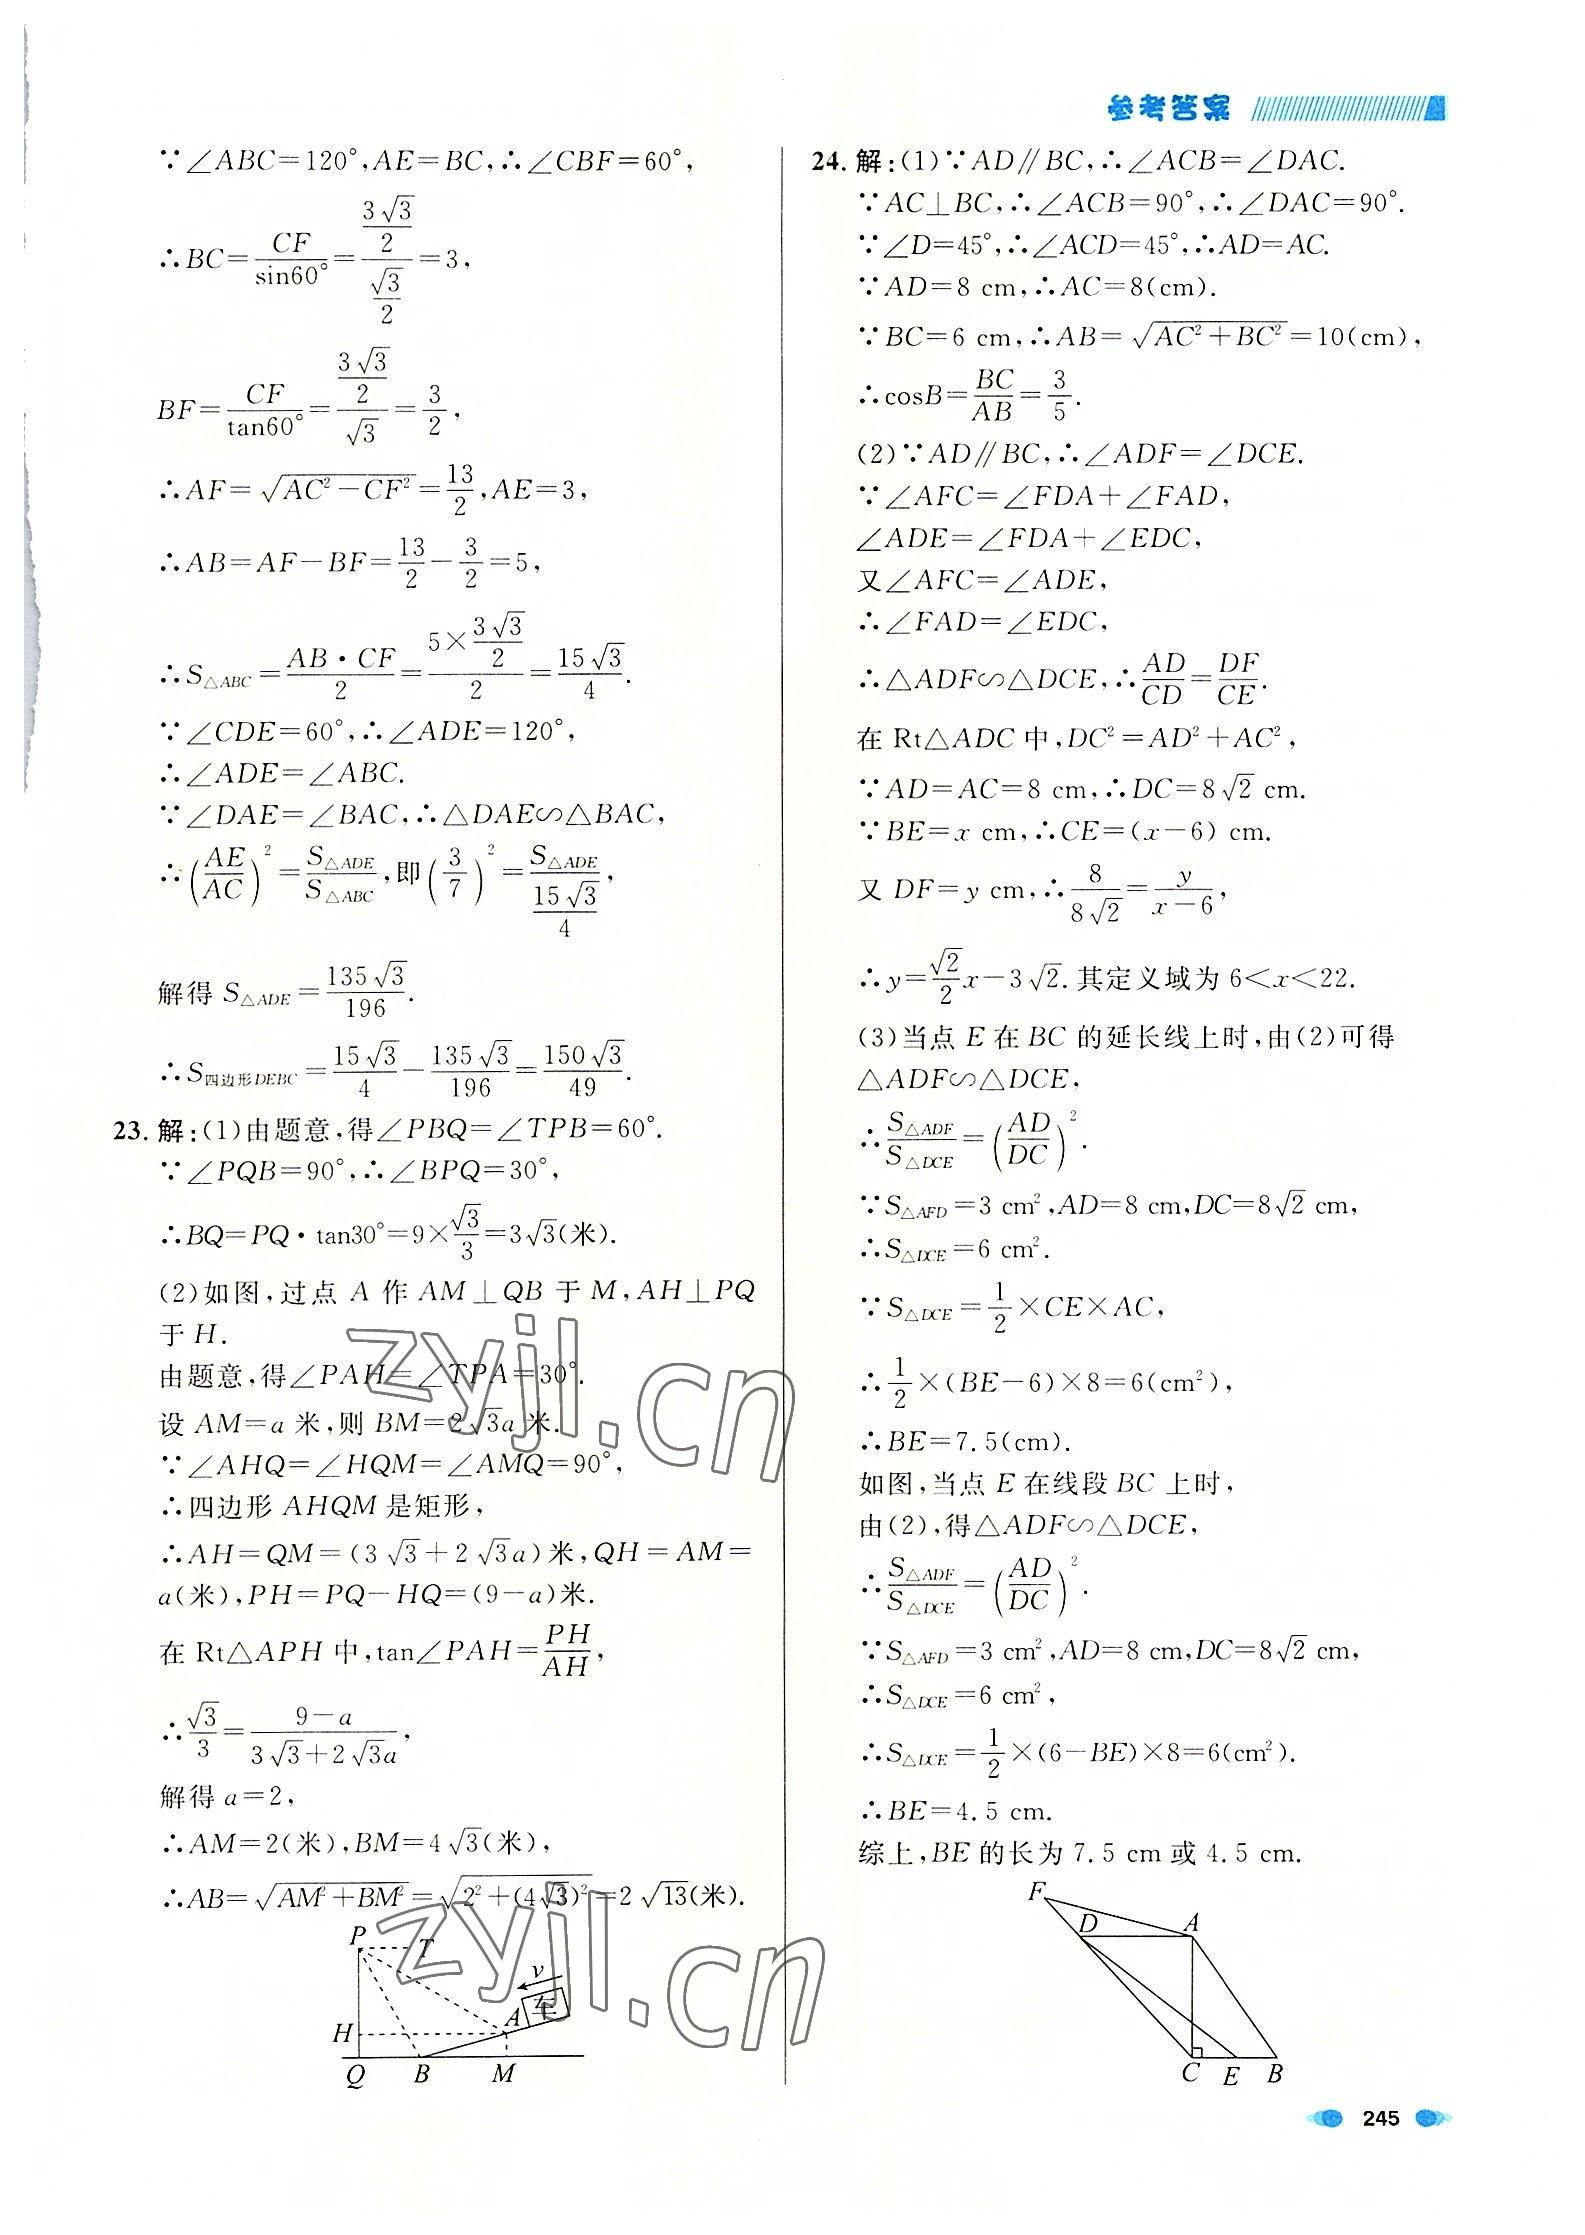 参考答案
∵∠ABC=120°,AE=BC,∴∠CBF=60°,
∴BC=CF/sin60°=(3√3/2)/(√3/2)=3,
BF=CF/tan60°=(3√3/2)/√3=3/2,
∴AF=√(AC²-CF²)=13/2,AE=3,
∴AB=AF-BF=13/2-3/2=5,
∴S△ABC=AB·CF/2=(5×3√3/2)/2=15√3/4.
∵∠CDE=60°,∴∠ADE=120°,
∴∠ADE=∠ABC.
∵∠DAE=∠BAC,∴△DAE∽△BAC,
∴(AE/AC)²=S△ADE/S△ABC,即(3/7)²=S△ADE/(15√3/4),
解得 S△ADE=135√3/196.
∴S四边形DEBC=15√3/4-135√3/196=150√3/49.
23. 解:(1)由题意,得∠PBQ=∠TPB=60°.
∵∠PQB=90°,∴∠BPQ=30°,
∴BQ=PQ·tan30°=9×√3/3=3√3(米).
(2)如图,过点 A 作 AM⊥QB 于 M,AH⊥PQ
于 H.
由题意,得∠PAH=∠TPA=30°.
设 AM=a 米,则 BM=2√3a 米.
∵∠AHQ=∠HQM=∠AMQ=90°,
∴四边形 AHQM 是矩形,
∴AH=QM=(3√3+2√3a)米,QH=AM=
a(米),PH=PQ-HQ=(9-a)米.
在 Rt△APH 中,tan∠PAH=PH/AH,
∴√3/3=(9-a)/(3√3+2√3a),
解得 a=2,
∴AM=2(米),BM=4√3(米),
∴AB=√(AM²+BM²)=√(2²+(4√3)²)=2√13(米).
P
T
v
车
A
H
Q
B
M
24. 解:(1)∵AD∥BC,∴∠ACB=∠DAC.
∵AC⊥BC,∴∠ACB=90°,∴∠DAC=90°.
∵∠D=45°,∴∠ACD=45°,∴AD=AC.
∵AD=8 cm,∴AC=8(cm).
∵BC=6 cm,∴AB=√(AC²+BC²)=10(cm),
∴cosB=BC/AB=3/5.
(2)∵AD∥BC,∴∠ADF=∠DCE.
∵∠AFC=∠FDA+∠FAD,
∠ADE=∠FDA+∠EDC,
又∠AFC=∠ADE,
∴∠FAD=∠EDC,
∴△ADF∽△DCE,∴AD/CD=DF/CE.
在 Rt△ADC 中,DC²=AD²+AC²,
∵AD=AC=8 cm,∴DC=8√2 cm.
∵BE=x cm,∴CE=(x-6) cm.
又 DF=y cm,∴8/8√2=y/(x-6),
∴y=√2/2x-3√2.其定义域为 6<x<22.
(3)当点 E 在 BC 的延长线上时,由(2)可得
△ADF∽△DCE,
∴S△ADF/S△DCE=(AD/DC)².
∵S△AFD=3 cm²,AD=8 cm,DC=8√2 cm,
∴S△DCE=6 cm².
∵S△DCE=1/2×CE×AC,
∴1/2×(BE-6)×8=6(cm²),
∴BE=7.5(cm).
如图,当点 E 在线段 BC 上时,
由(2),得△ADF∽△DCE,
∴S△ADF/S△DCE=(AD/DC)².
∵S△AFD=3 cm²,AD=8 cm,DC=8√2 cm,
∴S△DCE=6 cm²,
∴S△DCE=1/2×(6-BE)×8=6(cm²).
∴BE=4.5 cm.
综上,BE 的长为 7.5 cm 或 4.5 cm.
F
D
A
C
E
B
zyjl.cn
zyjl.cn
245